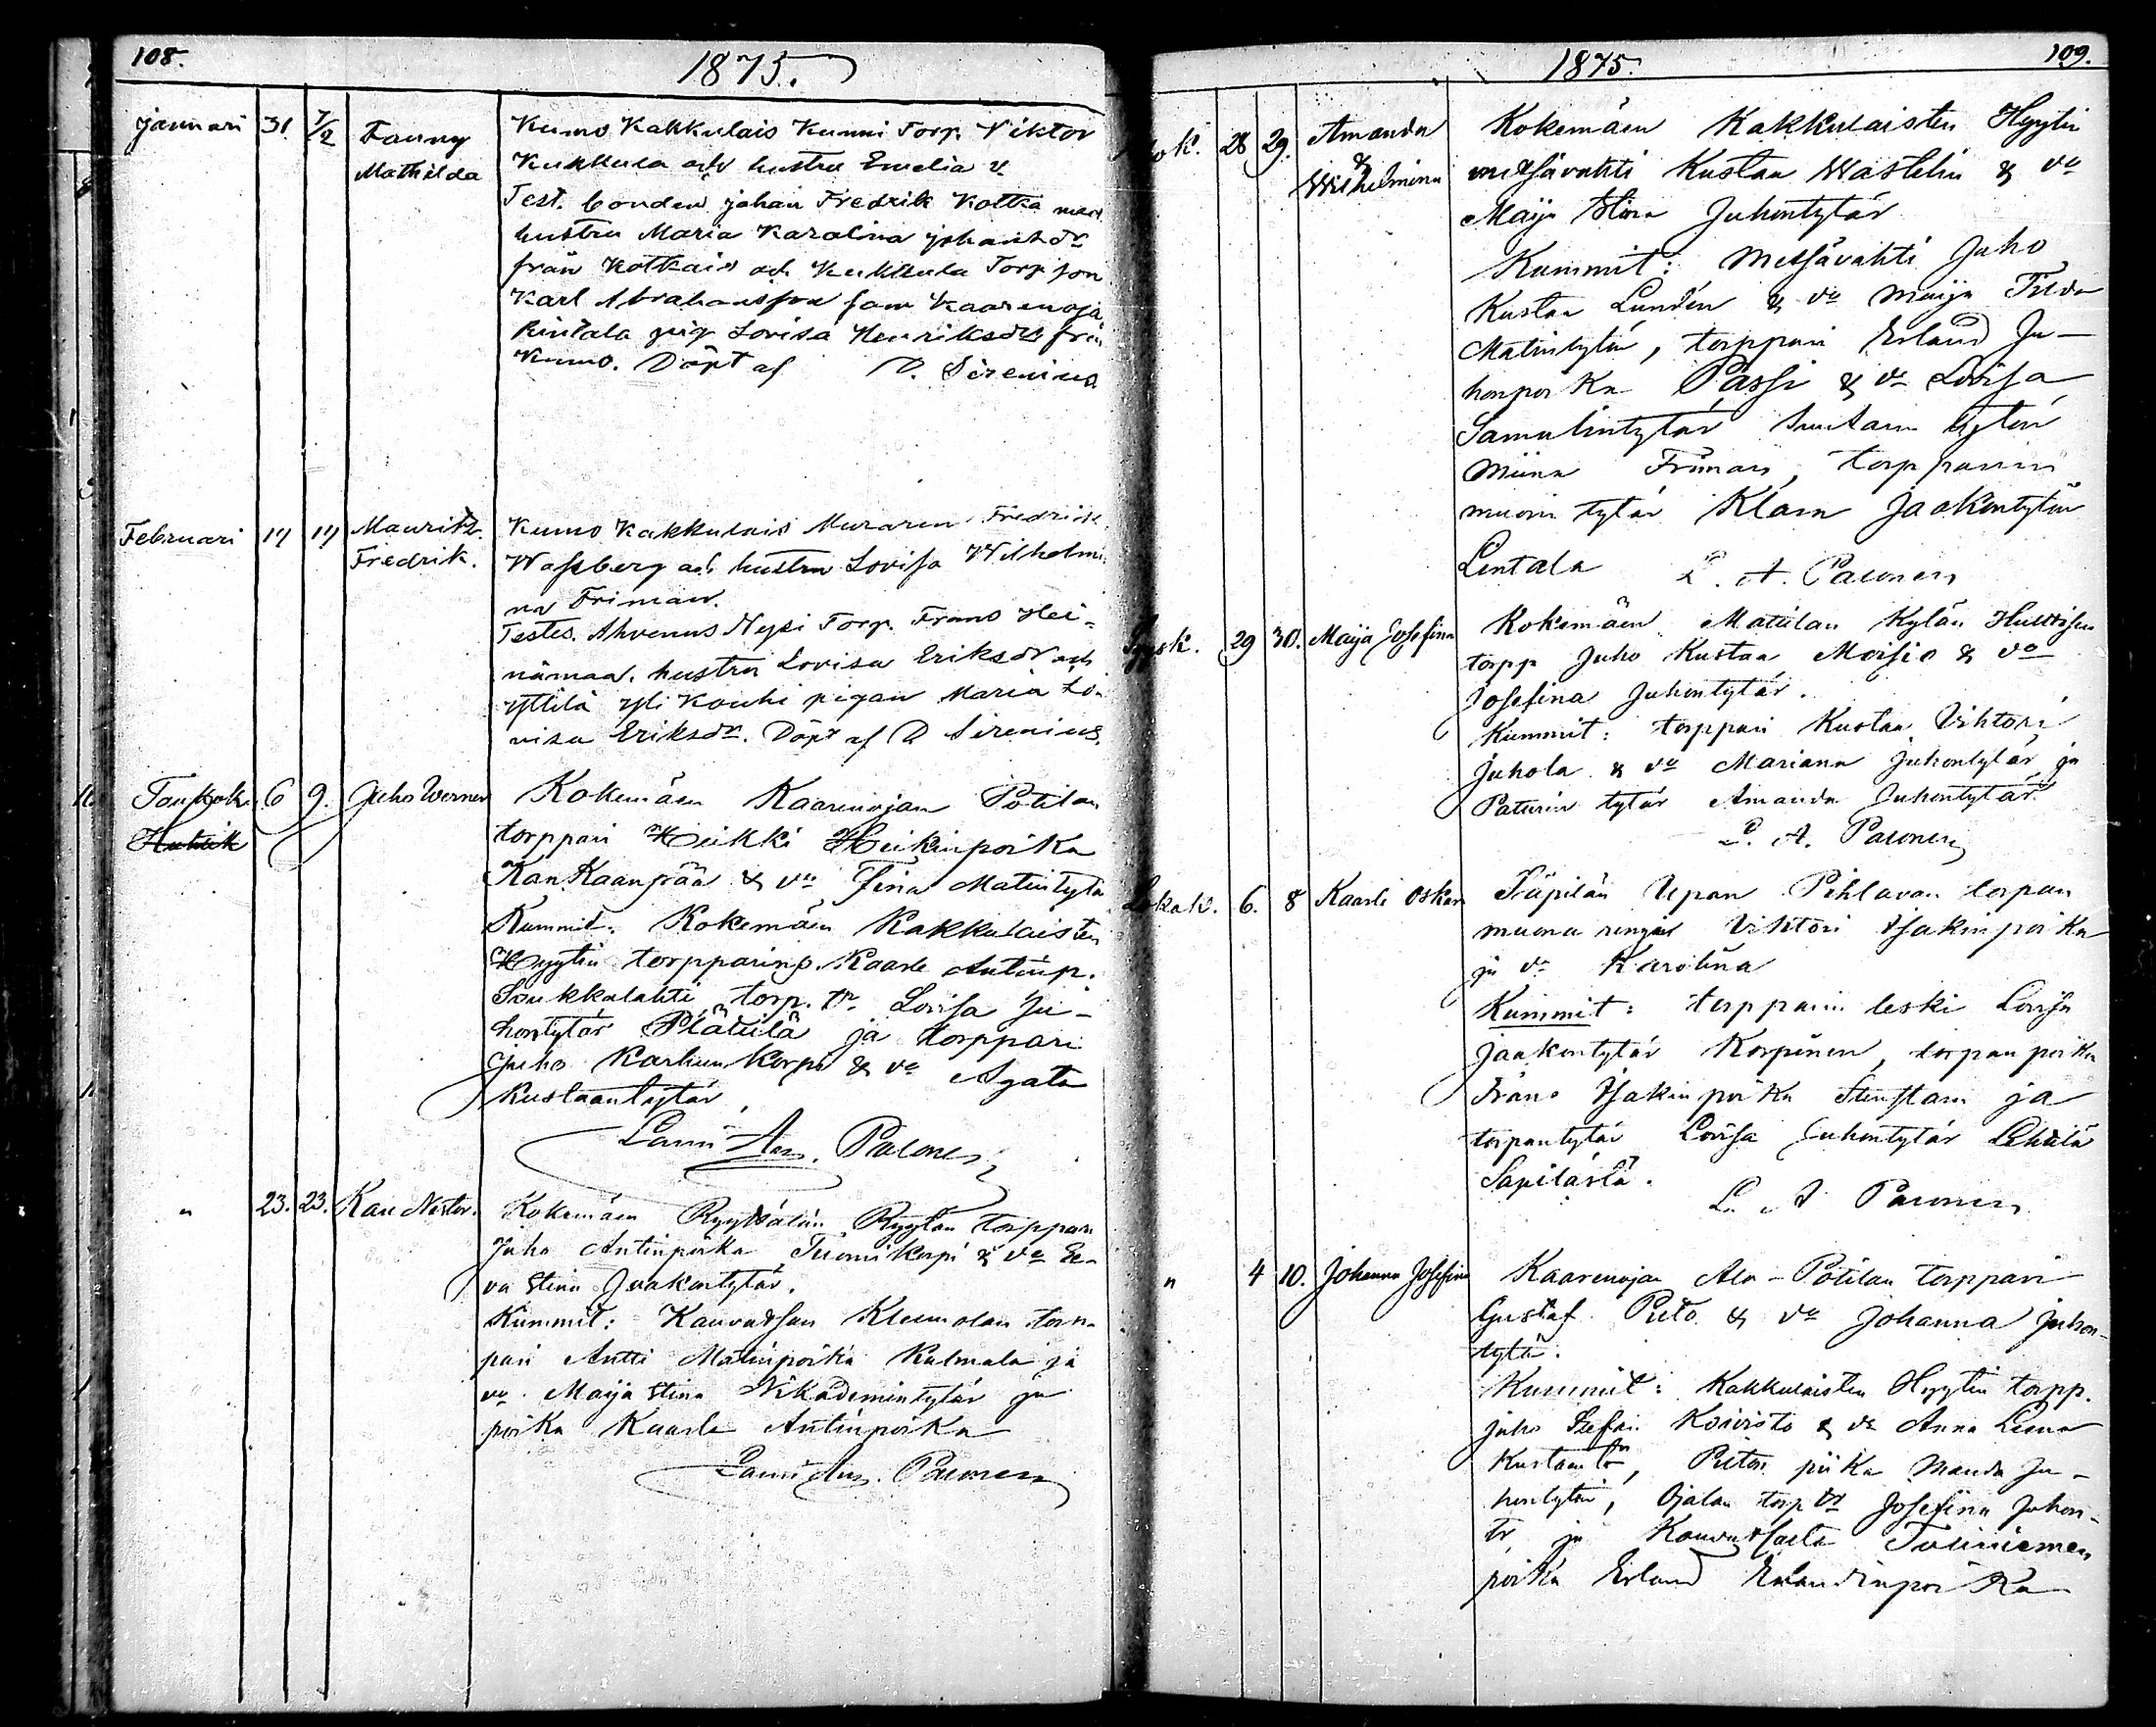 108.
1875.
Januari 31. 7/2 Fanny
Mathilda
Kumo Kakkulais Kunni Torp. Viktor
Kukkula och hustru Emelia
Test. bonden Johan Fredrik Kotka med
hustru Maria Karolina Johansdr
från Kotkais och Kukkula Torp son
Karl Abrahamsson samt Kaarenoja
Rintala pig. Lovisa Henriksdr från
Kumo. Döpt af D. Sirenius
Februari 17 19 Mauritz
Fredrik.
Kumo Kakkulais Muraren Fredrik
Wassberg och hustru Lovisa Wilhelmi
na Friman.
Testes. Ahvenus Nysi Torp. Frans Hei=
nämaa. hustru Lovisa Eriksdr och
Yttilä Yli Kouhi pigan Maria Lo=
visa Eriksdr. Döpt af D Sirenius.
Toukok. 6 9. Juho Werner
Kokemäen Kaarenojan Potilan
torppari Heikki Heikinpoika
Kankaanpää & vo Fina Matintytär
Kummit: Kokemäen Kakkulaisten
Hyytin torpparinp. Kaarle Antinp.
Soukkalahti, torp. tr Lovisa Ju-
hontytär Plätilä ja torppari
Juho Karhunkorpi & vo Agata
Kustaantytär
Lauri Aug. Paconen
" 23. 23. Kaarle Nestor.
Kokemäen Ryytsälän Ryytän torppari
Juho Antinpoika Tuomikorpi & vo Ee-
va Stina Jaakontytär.
Kummit: Kauvatsan Kleemolan torp-
pari Antti Matinpoika Kulmala ja
vo Maija Stina Nikademintytär ja
poika Kaarle Antinpoika
Lauri Aug. Paconen
109.
1875.
28 29. Amanda
&
Wilhelmina
Kokemäen Kakkulaisten Hyytin
metsävahti Kustaa Wastelin & vo
Maija Stina Juhontytär
Kummit: Metsävahti Juho
Kustaa Lundén & vo Maija Tilda
Matintytär, torppari Erland Ju-
honpoika Passi & vo Lovisa
Samulintytär tytär
Miina Friman, torpparin
muori tytär Klara Jaakontytär
Lentala L. A. Paconen
Syysk. 29 30. Maija Josefina
Kokemäen Matilan Kylän
torpp Juho Kustaa Moisio & vo
Josefina Juhontytär.
Kummit: torppari Kustaa Vihtori
Juhola & vo Mariana Juhontytär ja
Paturin tytär Amanda Juhontytär.
L. A. Paconen
Lokak. 6. 8 Kaarle Oskar
Säpilän Upan Pihlavan torpan
muona rengin Vihtori Isakinpoika
ja vo Karolina
Kummit: torpparin leski Lovisa
Jaakontytär Korpinen, torpan poika
Frans Isakinpoika Stenstam ja
torpantytär Lovisa Juhontytär Lähtilä
Säpilästä.
L. A Paconen
" 4 10. Johanna Josefina
Kaarenojan Ala-Potilan torppari
Gustaf Pieto & vo Johanna Juhon-
tytär.
Kummit: Kakkulaisten Hyytin torpp.
Juho Stefan Koivisto & vo Anna Leena
Kustaantr, Pieton piika Manda Ju-
hontytär, Ojalan torp tr Josefina Juhon-
tr ja Kauvatsalta
poika Erland Erlandinpoika